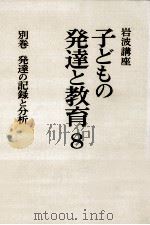 岩波講座
子どもの
発達と教育8
別巻 発達の記録と分析